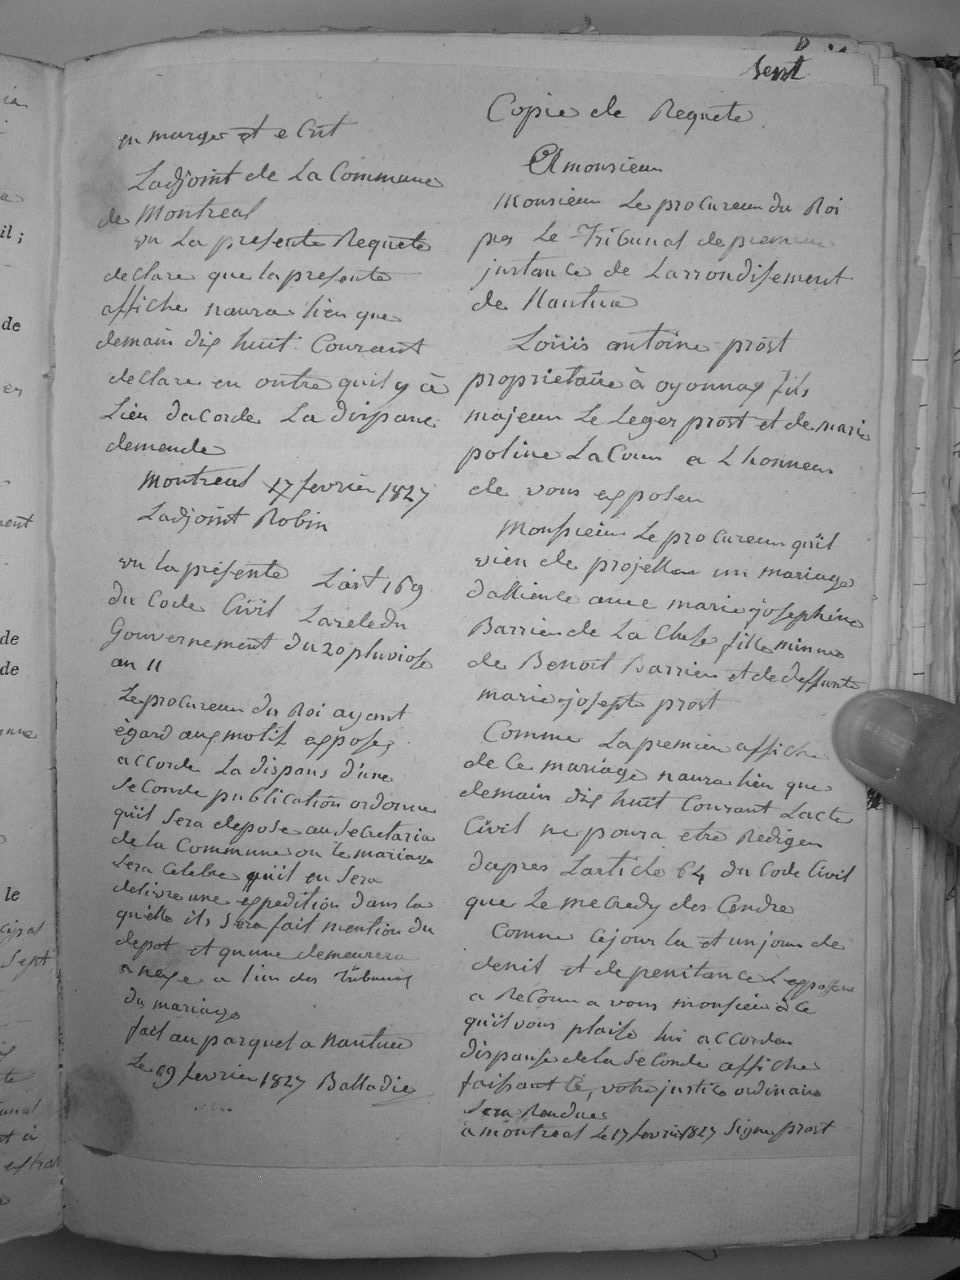 Sept
Copie de Requete
A monsieur
Monsieur Le procureur du Roi
pres Le Tribunal de premiere
justance de Larrondisement
de Nantua
Loüis antoine prost
proprietaire à oyonnax fils
majeur Le Leger prost et de marie
poline LaCour a Lhonneur
de vous exposer
Monsieur Le procureur quil
vien de projetter un mariage
dallience avec marie josephine
Barrier de La Cluse fille mineure
de Benoit Barrier et de deffunte
marie josepte prost
Comme La premier affiche
de Ce mariage naura lieu que
demain dix huit Courant Lacte
Civil ne poura etre Rediger
dapres Larticle 64 du Code Civil
que Le mecredy des Cendre
Comme Cejour la et un jour de
denil et de penitance Lexposant
a Recour a vous monsieur à Ce
quil vous plaise lui accorder
dispanse de la seconde affiche
faissant Ce, votre justice ordinaire
Sera Rendue
a montreal Le 17 fevrier 1827 Signe prost
en marge et e Crit
Ladjoint de La Commune
de Montreal
vu La presente Requete
declare que la presente
affiche naura lieu que
demain dix huit Courant
declare en outre quil y à
Lieu dacorde La dispanc
demende
Montreal 17 fevrier 1827
Ladjoint Robin
vu la presente Lart 169
du Code Civil Larele du
Gouvernement du 20 pluviose
an 11
Le procureur du Roi ayant
égard aux motif exposes
accorde La dispans d'une
seconde publication ordonne
quil sera depose au secretaria
de la Commune ou le mariage
sera Celebre quil en sera
delivre une expedition dans la
quelle ils sera fait mention du
depot et quune demeurera
anexe a lieu des Tribunaux
du mariage
fait au parquet a Nantua
Le 19 fevrier 1827 Balladie